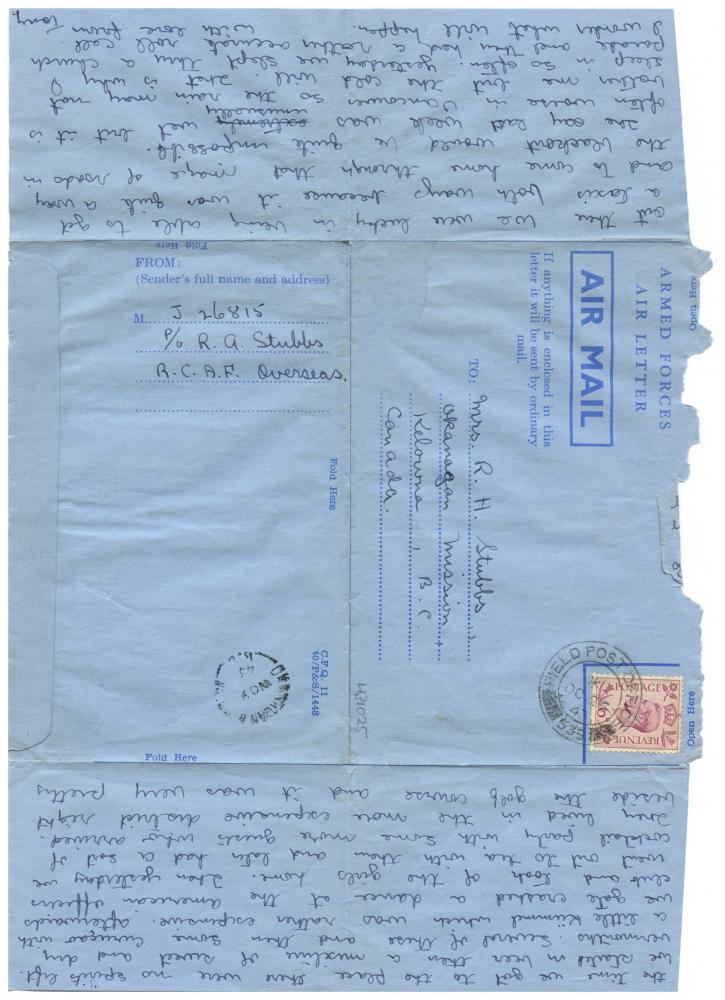 the time we got to the place there were no spirits left.
we started in beer then a mixture of sweet and dry
vermouths several of these and then some curaçao with
a little kümmel which was rather expensive. Afterwards
we gate crashed a dance at the american officers
club and took of the girls home. Then yesterday we
went out to tea with them and later had a sort of
cocktail party with some more guests who arrived.
They lived in the more expensive district right
beside the golf course and it was very pretty
out there. We were lucky in being able to get
a taxis both ways because it was quite a way
and to come home through that maze of roads in
the blackout would be quite impossible.
The say last week was unusually wet but it is
often worse in Vancouver so the rain may not
bother me but the cold will. That is why I
sleep in so often. yesterday we slept thru a church
parade and they had a rather accurate roll call.
I wonder what will happen.
with love from
Tony
ARMED FORCES
AIR LETTER
AIR MAIL
If anything is enclosed in this
letter it will be sent by ordinary
mail.
TO: Mrs. R. H. Stubbs
Okanagan Mission
Kelowna, B.C.
Canada.
POSTAGE
REVENUE
6D
FIELD POST OFFICE
539
431025
Open Here
Open Here
Fold Here
FROM:
(Sender's full name and address)
M. J 26815
P/O R. A. Stubbs
R.C.A.F. Overseas.
Fold Here
OKANAGAN MISSION
NOV
43
B.C.
C.F.Q. 11
40/P&S/1448
Fold Here